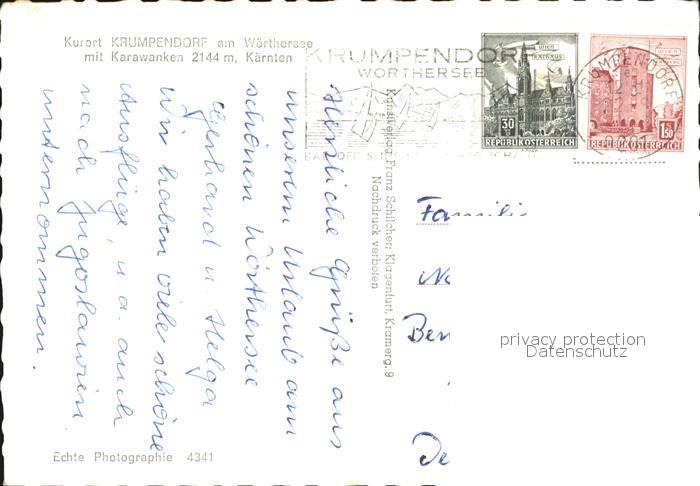 Kurort KRUMPENDORF am Wörthersee
mit Karawanken 2144 m, Kärnten
KRUMPENDORF
WÖRTHERSEE
WIEN
RATHAUS
30
REPUBLIK ÖSTERREICH
WIEN
1.50
REPUBLIK ÖSTERREICH
KRUMPENDORF
Herzliche Grüße aus
unserem Urlaub am
schönen Wörthersee
Gerhard u Helga
Wir haben viele schöne
Ausflüge, u. a. auch
nach Jugoslawien
unternommen.
Kunstverlag Franz Schilcher, Klagenfurt, Kramerg. 9
Nachdruck verboten
Familie
Ber
De
privacy protection
Datenschutz
Echte Photographie 4341